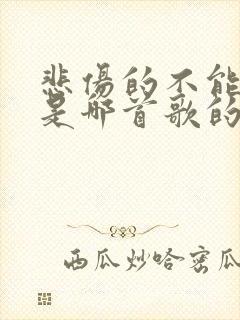 悲傷的不能
是哪首歌的
西瓜炒哈密瓜